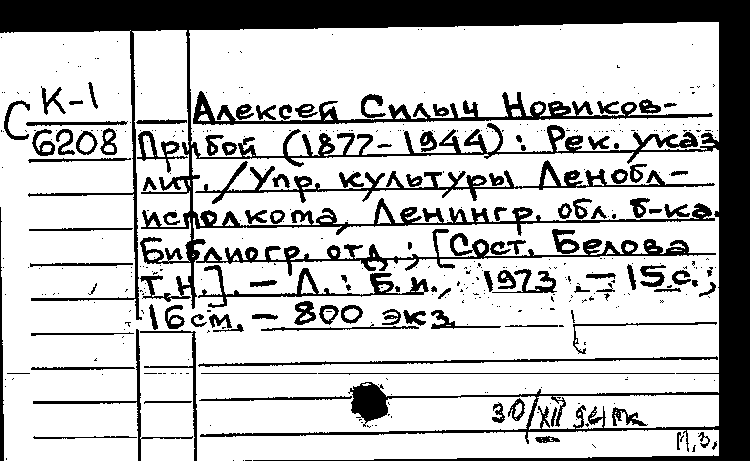 С К-1
6208
Алексей Силыч Новиков-
Прибой (1877-1944): Рек. указ
лит. / Упр. культуры Ленобл-
исполкома, Ленингр. обл. б-ка.
Библиогр. отд.; [Сост. Белова
Т.Н.]. - Л.: Б.и., 1973. - 15с.;
16см. - 800 экз.
30/XII
М.З.